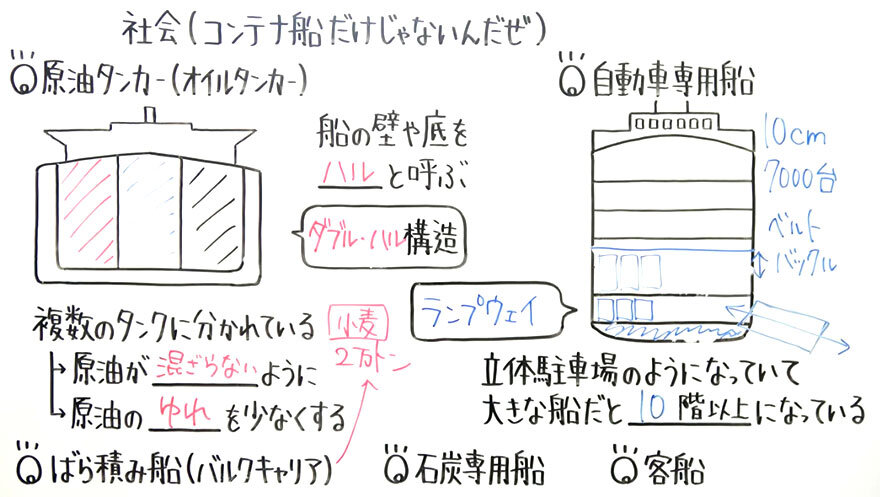 社会(コンテナ船だけじゃないんだぜ)
原油タンカー(オイルタンカー)
船の壁や底を
ハルと呼ぶ
ダブル・ハル構造
複数のタンクに分かれている
→原油が混ざらないように
→原油のゆれを少なくする
小麦
2万トン
ばら積み船(バルクキャリア)
自動車専用船
10cm
7000台
ベルト
バックル
ランプウェイ
立体駐車場のようになっていて
大きな船だと10階以上になっている
石炭専用船
客船